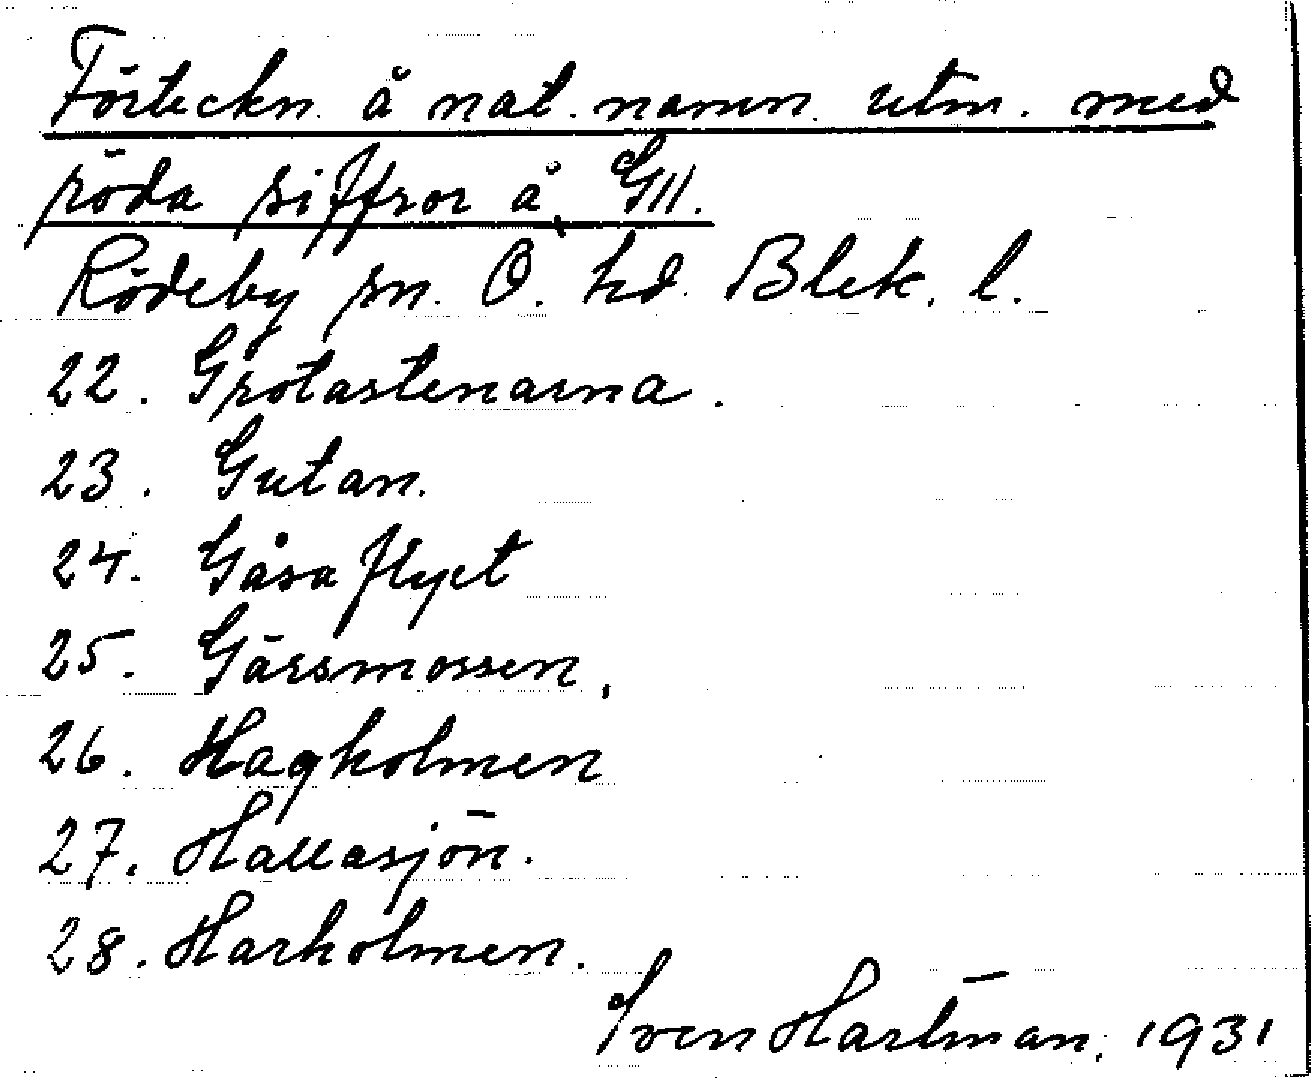 Förteckn. å nat. namn. utm. med
röda siffror å GII.
Rödeby sn. Ö. hd. Blek. l.
22. Grotastenarna.
23. Gutan.
24. Gåsaflyet
25. Gärsmossen.
26. Hagholmen
27. Hallasjön.
28. Harholmen.
Sven Hartman, 1931